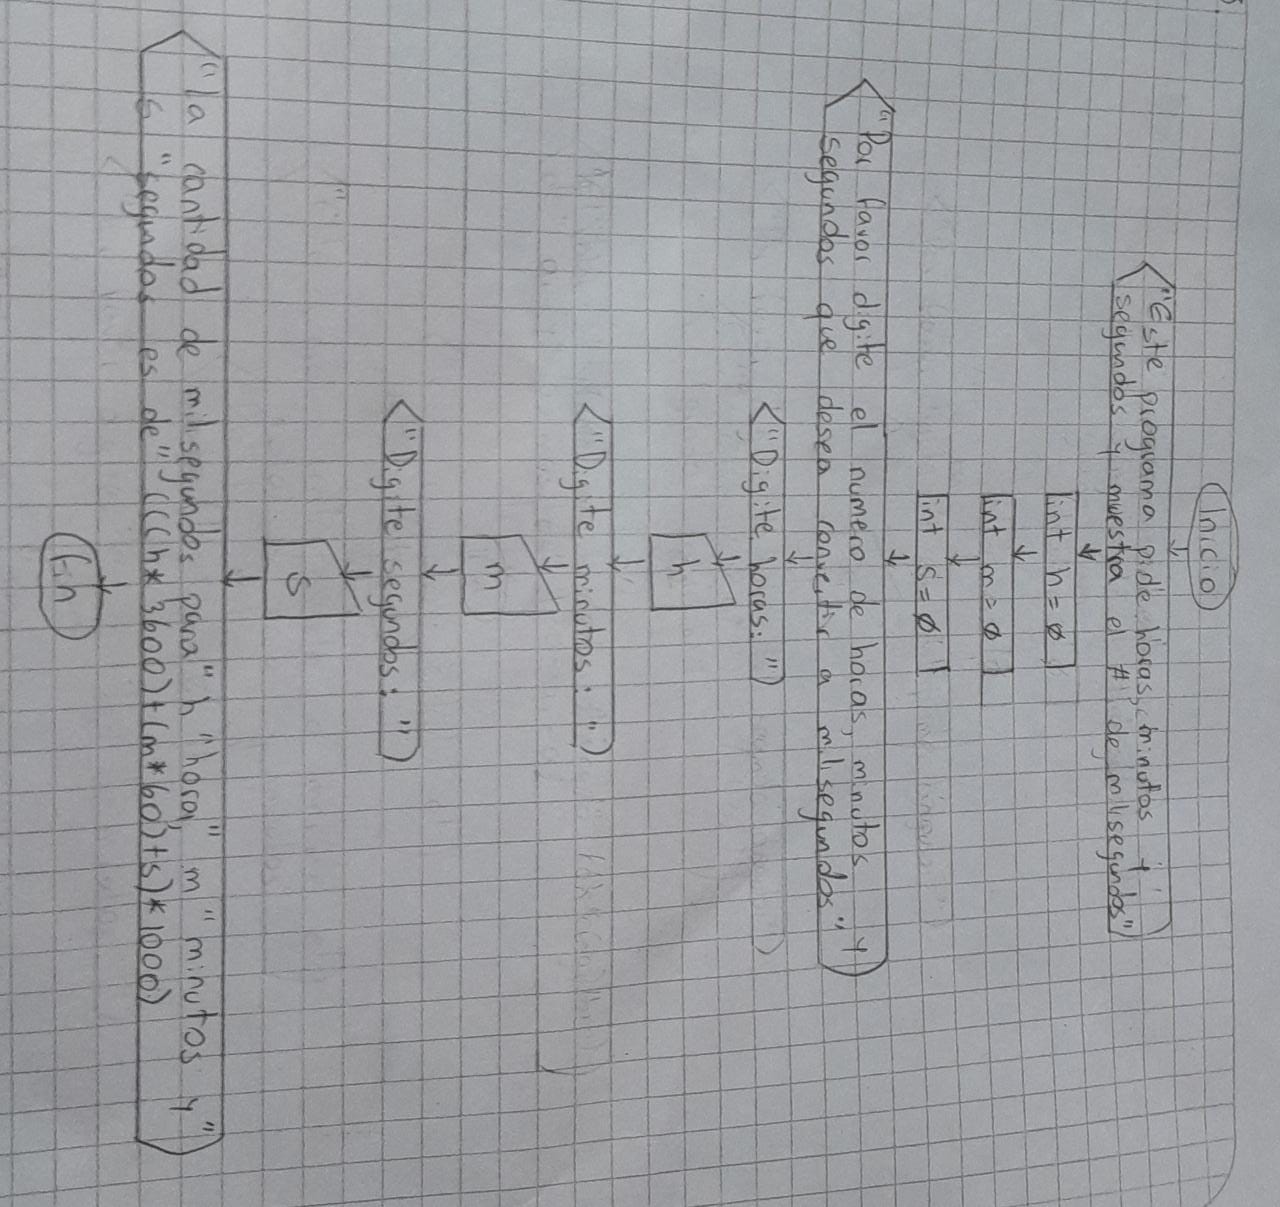 Inicio
"Este programa pide horas, minutos y
segundos y muestra el # de milisegundos"
int h = ø
int m = ø
int s = ø
"Por favor digite el numero de horas, minutos y
segundos que desea convertir a milisegundos"
"Digite horas: "
h
"Digite minutos: "
m
"Digite segundos: "
s
"la cantidad de milisegundos para" h "hora," m "minutos y"
s "segundos es de" (((h* 3600)+(m*60)+s)*1000)
Fin